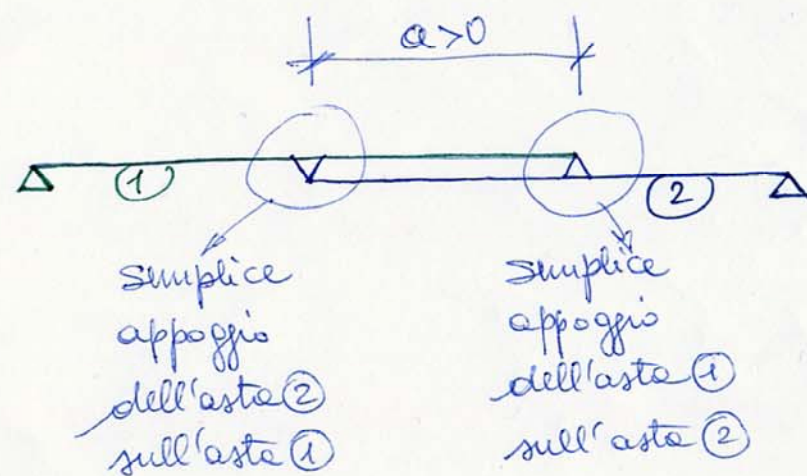 a>0
1
2
semplice
appoggio
dell'asta 2
sull'asta 1
semplice
appoggio
dell'asta 1
sull'asta 2